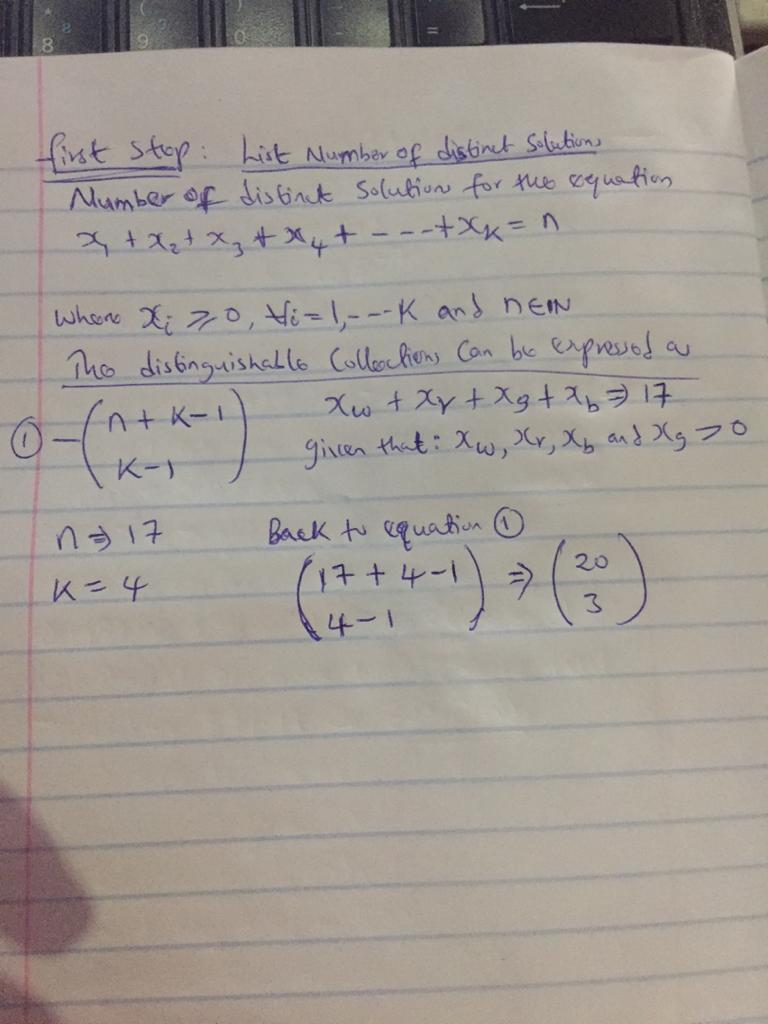 8 9 0 - =
first step: List Number of distinct Solutions
Number of distinct Solution for the equation
x₁ + x₂ + x₃ + x₄ + - - - - + xK = n
where xᵢ ⩾ 0, ∀i = 1, - - - K and n∈ℕ
The distinguishable Collections Can be expressed as
① - (n + K - 1 / K - 1) xw + xr + xg + xb ⇒ 17
given that: xw, xr, xb and xg > 0
n ⇒ 17 Back to equation ①
K = 4 (17 + 4 - 1 / 4 - 1) ⇒ (20 / 3)